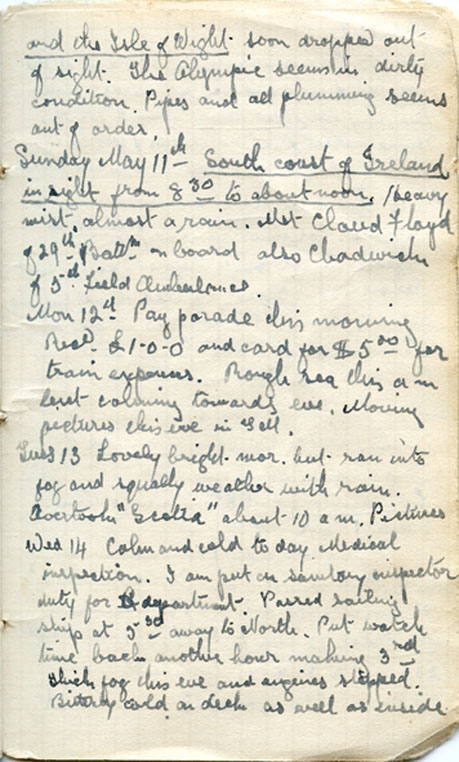 and the Isle of Wight soon dropped out
of sight. The Olympic seems in dirty
condition. Pipes and all plumming seems
out of order.
Sunday May 11th South coast of Ireland
in sight from 8 30 to about noon. Heavy
mist, almost a rain. Met Claud Floyd
of 29th Battn on board also Chadwick
of 5th Field Ambulance.
Mon 12th Pay parade this morning
Recd £1-0-0 and card for $5 00 for
train expenses. Rough sea this a m
but calming towards eve. Moving
pictures this eve in
Tues 13 Lovely bright mor. but ran into
fog and squally weather with rain.
Overtook "Scotia" about 10 a m. Pictures
Wed 14 Calm and cold to day Medical
inspection. I am put on sanitary inspector
duty for department. Passed sailing
ship at 5 30 away to North. Put watch
time back another hour making 3rd
thick fog this eve and engines stopped.
Bitterly cold on deck as well as inside